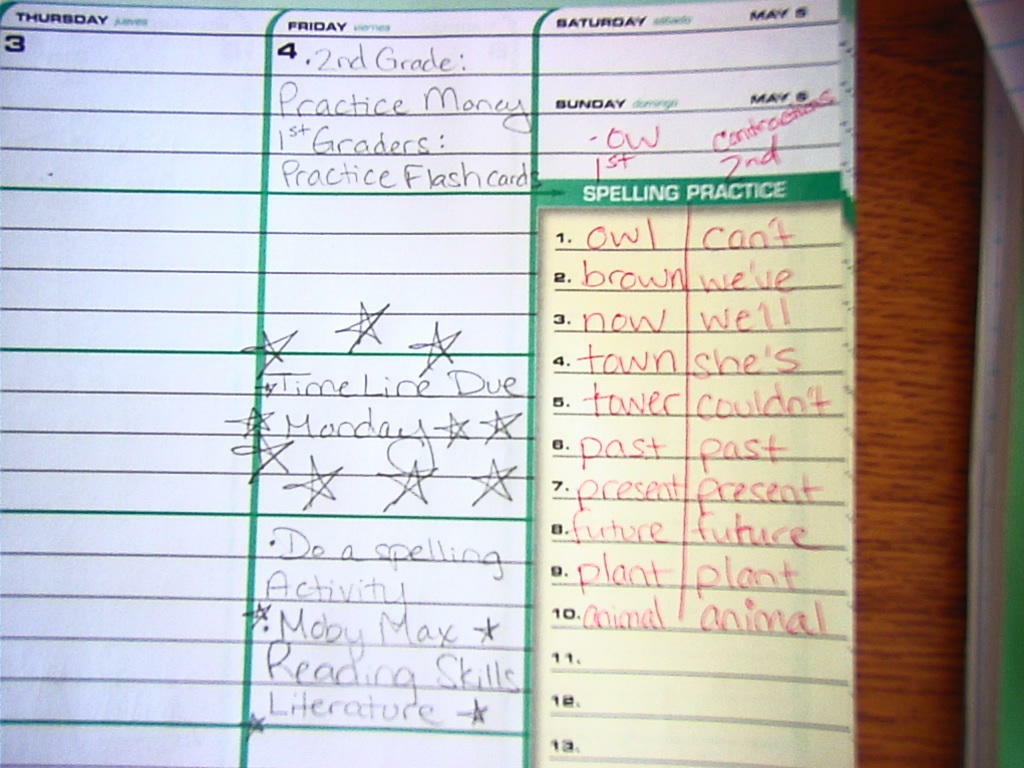 THURSDAY jueves
3
FRIDAY viernes
4 • 2nd Grade:
Practice Money
1st Graders:
Practice Flashcards
Time Line Due
Monday
• Do a spelling
Activity
• Moby Max
Reading Skills
Literature
SATURDAY sábado MAY 5
SUNDAY domingo MAY 6
- ow contractions
1st 2nd
SPELLING PRACTICE
1. owl can't
2. brown we've
3. now we'll
4. town she's
5. tower couldn't
6. past past
7. present present
8. future future
9. plant plant
10. animal animal
11.
12.
13.